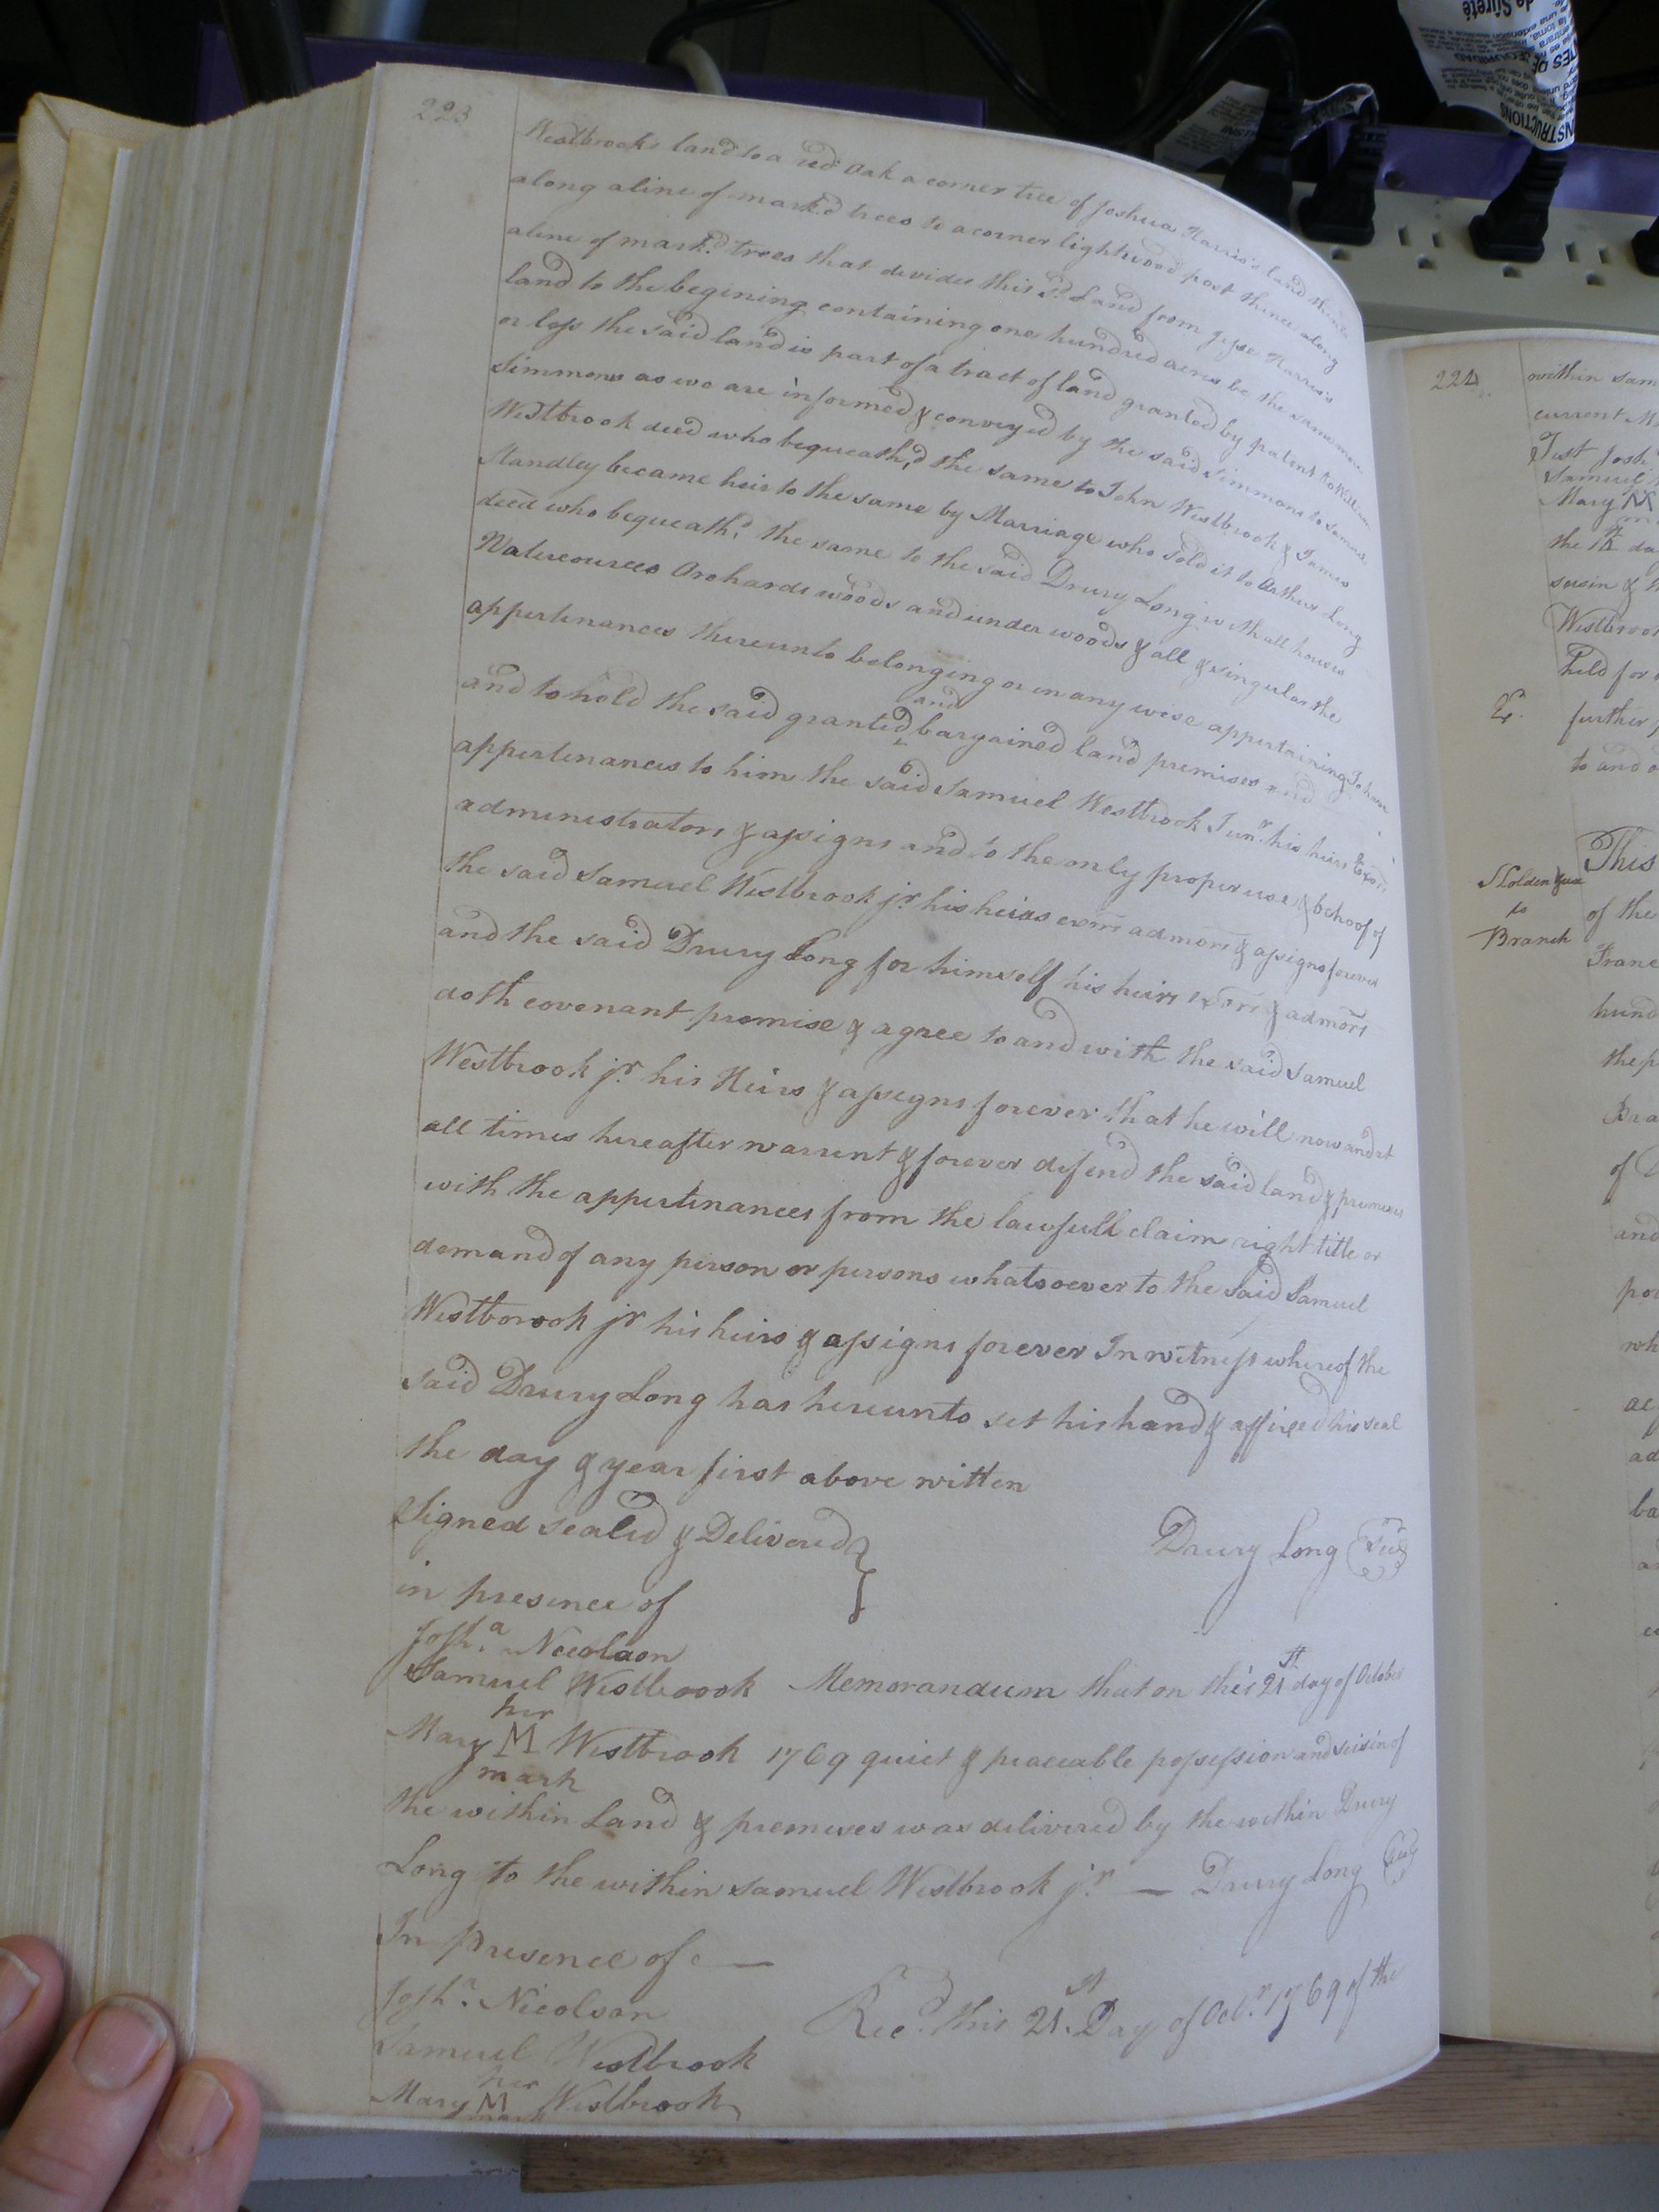 223
Westbrooks land to a red Oak a corner tree of Joshua Harris's land thence
along a line of mark.d trees to a corner lightwood post thence along
a line of mark.d trees that devides this s.d Land from Jesse Harris's
land to the begining containing one hundred acres be the same more
or less the said land is part of a tract of land granted by patent to William
Simmons as we are informed & conveyed by the said Simmons to Samuel
Westbrook decd who bequeath,d the same to John Westbrook & James
Standley became heir to the same by Marriage who sold it to Arthur Long
decd who bequeath,d the same to the said Drury Long with all houses
Watercources Orchards woods and under woods & all & singular the
appertenances thereunto belonging or in any wise appertaining To have
and to hold the said granted and bargained land premises and
appertenances to him the said Samuel Westbrook Junr. his heirs exors
administrators & assigns and to the only proper use & behoof of
the said Samuel Westbrook jr. his heirs exors admors & assigns forever
and the said Drury Long for himself his heirs exors & admors
doth covenant promise & agree to and with the said Samuel
Westbrook jr. his Heirs & assigns forever that he will now and at
all times hereafter warrent & forever defend the said land & premises
with the appertinances from the lawfull claim right title or
demand of any person or persons whatsoever to the said Samuel
Westborook jr his heirs & assigns forever In witness whereof the
said Drury Long has hereunto set his hand & affixed his seal
the day & year first above witten
Signed sealed & Delivered
Drury Long Seal
in presence of
Josha. Nicolson
Samuel Westbroook Memorandum that on this 21st day of October
her
Mary M Westbrook 1769 quiet & peaceable possession and seisin of
mark
the within Land & premeses was delivered by the within Drury
Long to the within Samuel Westbrook jr. — Drury Long Seal
In presence of —
Josha. Nicolson
Recd. this 21st. Day of Octr. 1769 of the
Samuel Westbrook
her
Mary M Westbrook
mark
224
within
current
Test Josh
Samuel
Mary M
the
seisin &
Westbroo
held for
further
to and
This
Holden &ux
to
Branch
of the
Franc
hund
the p
Bra
of D
and
por
wh
ad
ba
INSTRUCTIONS
de Sûreté